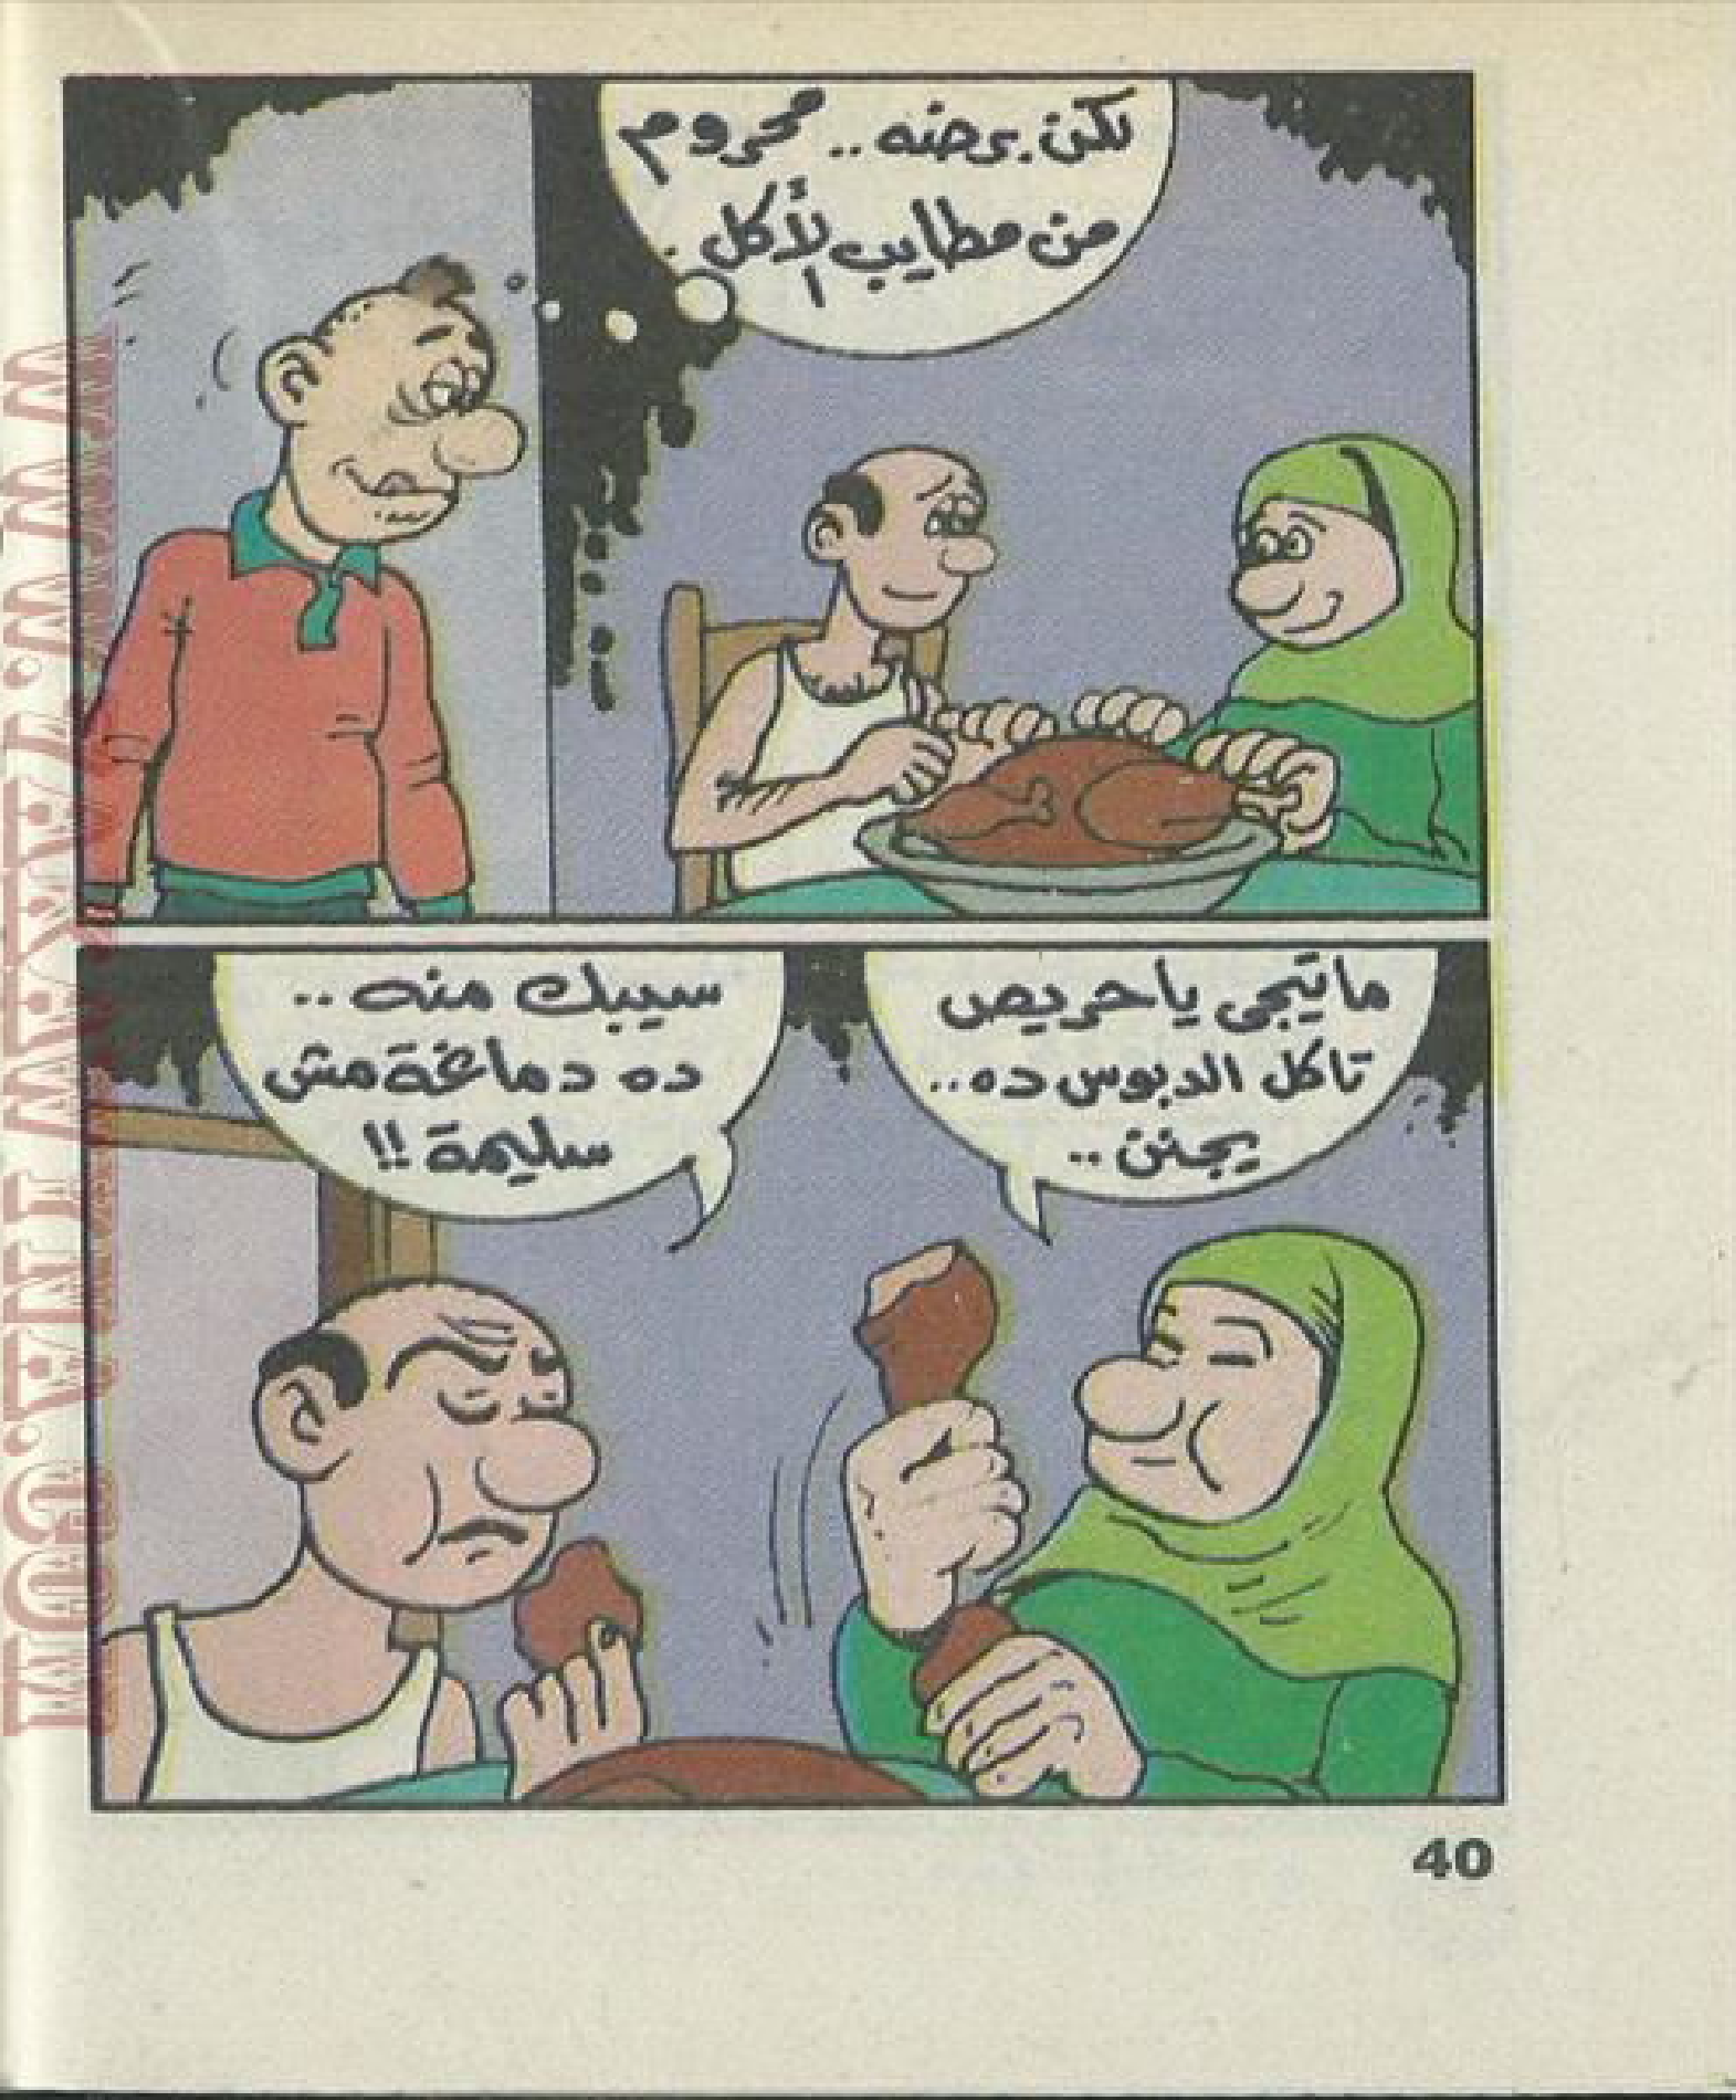 لكن برضه.. محروم
من مطايب الأكل.
ماتيجى ياحريص
تاكل الدبوس ده..
يجنن..
سيبك منه..
ده دماغة مش
سليمة!!
40